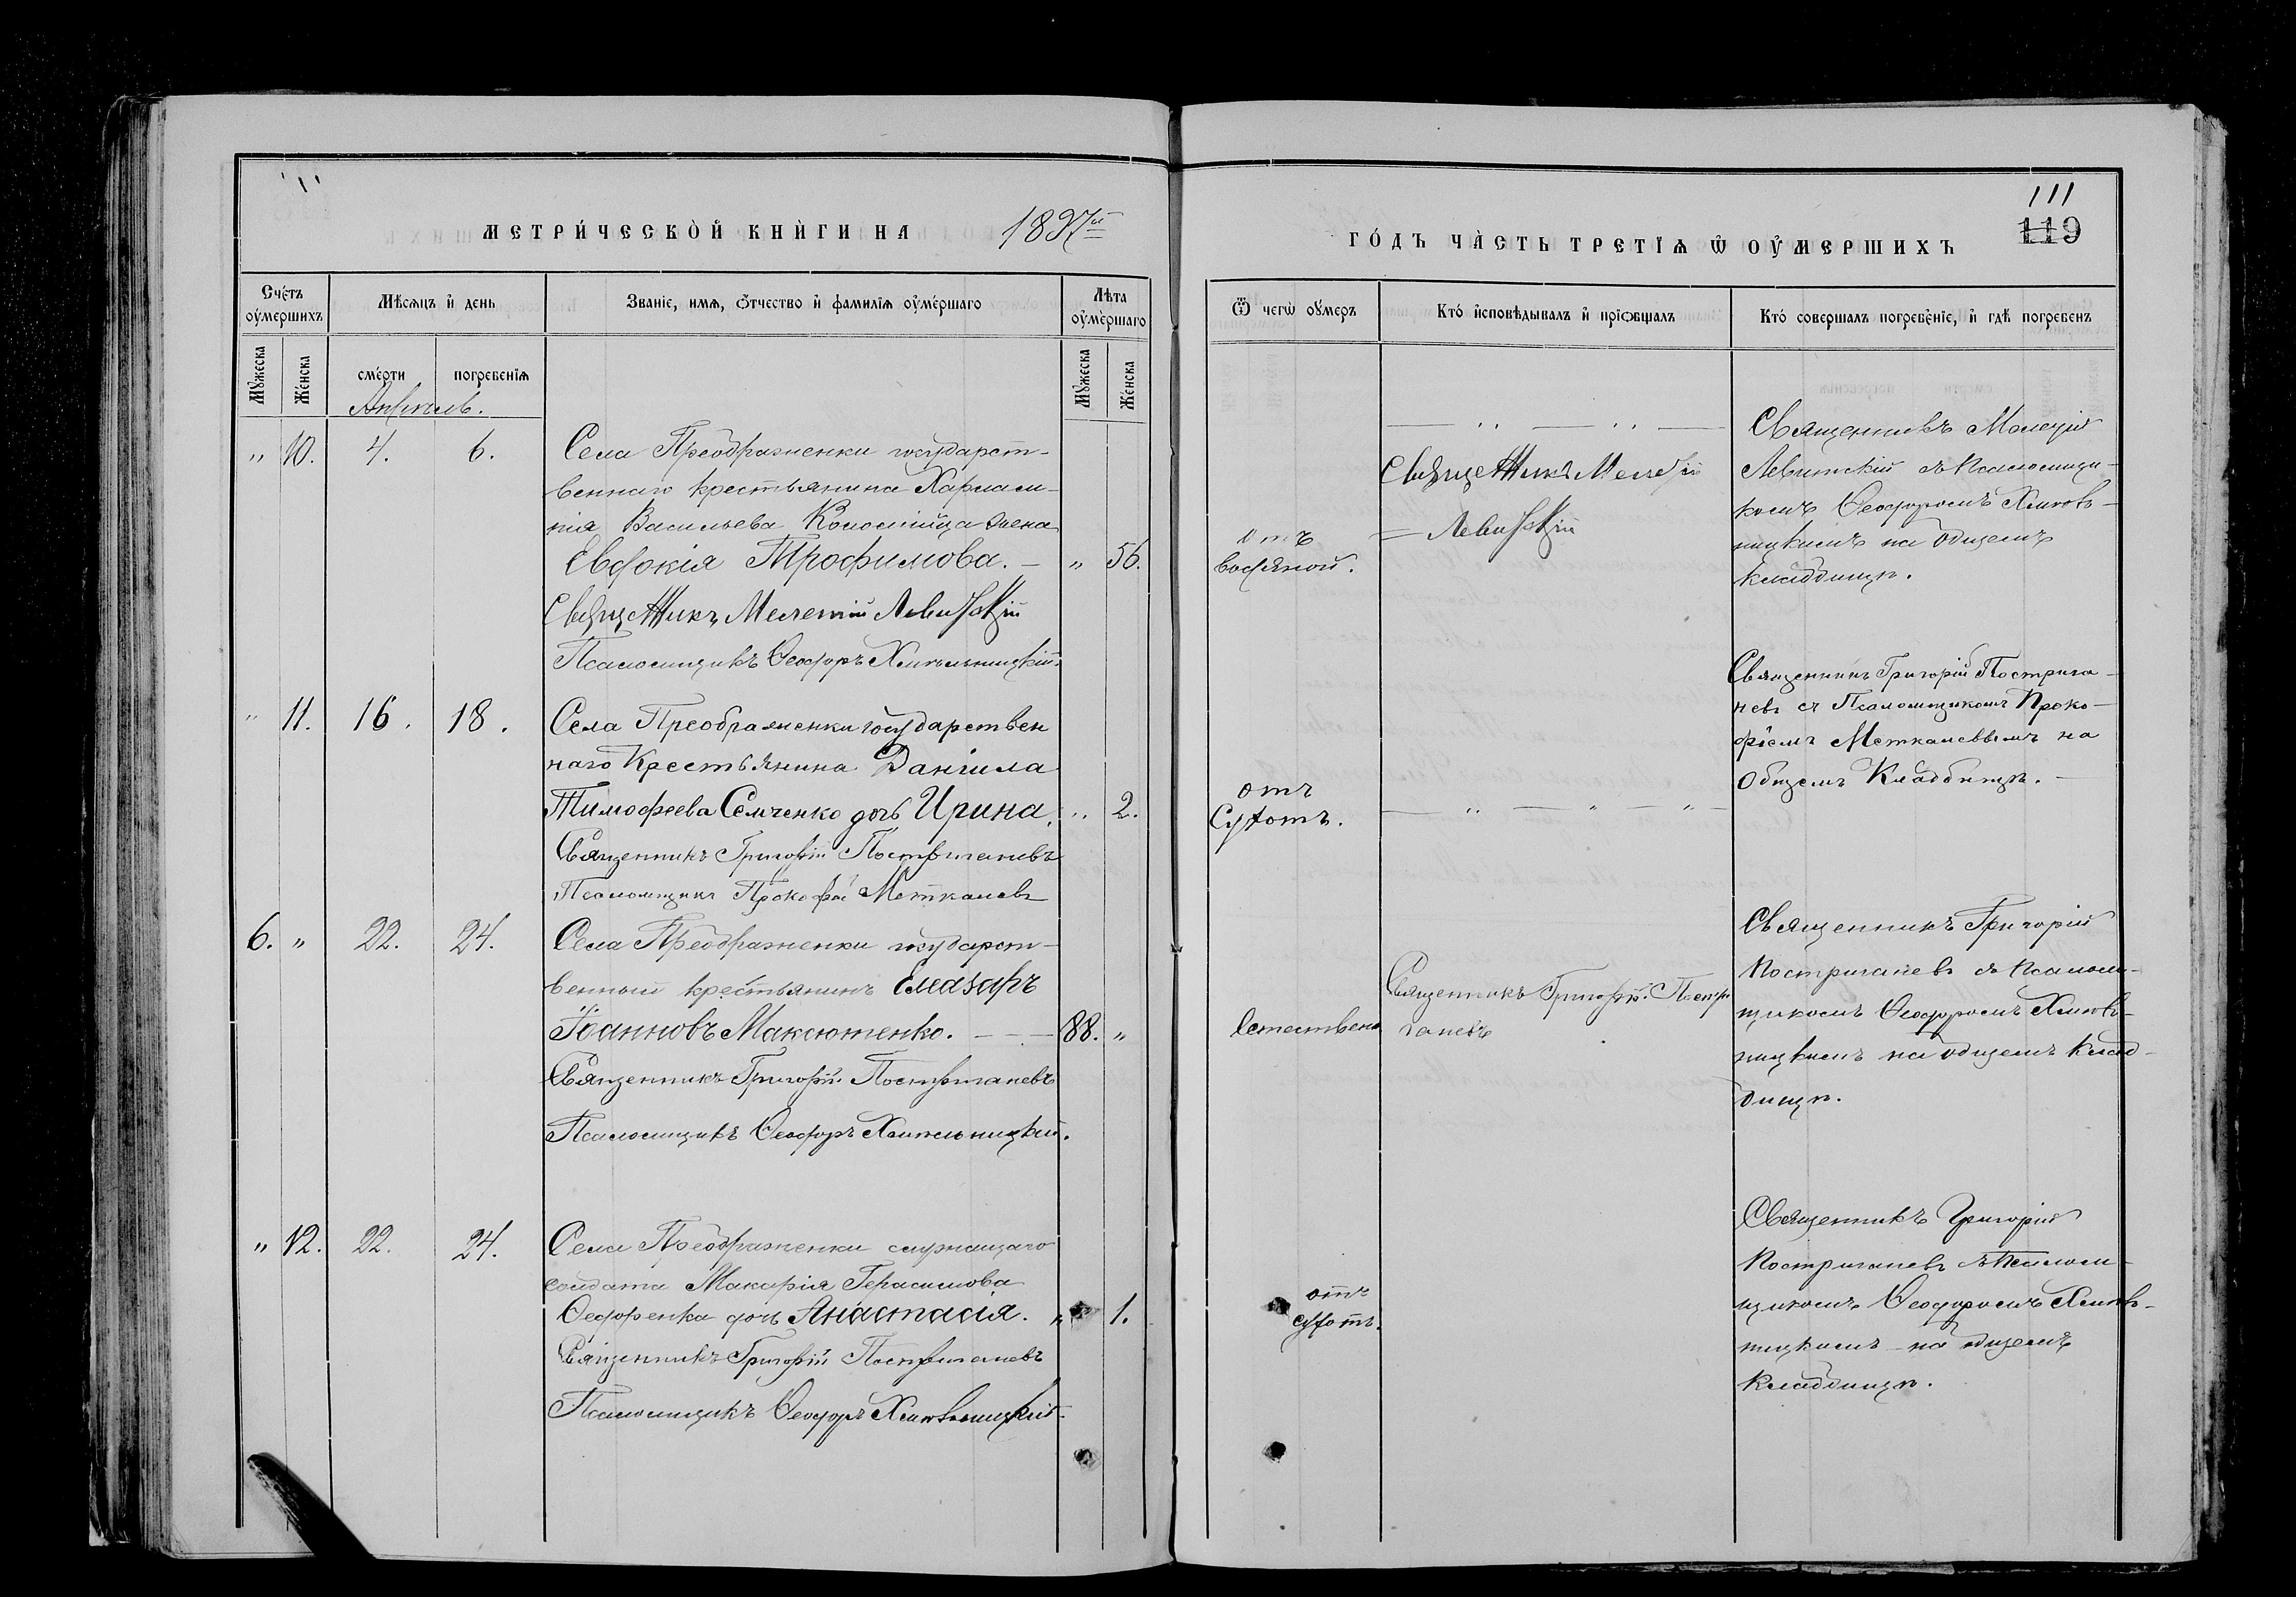 111
119
МЕТРИ́ЧЕСКОЙ КНИ́ГИ НА 1897й
ГО́ДЪ ЧА́СТЬ ТРЕТІѦ Ѡ ОУ҆МЕРШИХЪ
Сче́тъ оу҆мершихъ
Мѣсѧцъ и҆ день
Званіе, имѧ, ѿтчество и҆ фамиліѧ оу҆ме́ршаго
Лѣта оу҆ме́ршаго
Ѿ чегѡ̀ оу҆́меръ
Кто́ и҆сповѣдывалъ и҆ прїѡбщалъ
Кто́ совершалъ погребе́ніе, и҆ гдѣ̀ погребенъ
Мꙋ́жеска
Же́нска
сме́рти
погребе́нїѧ
Мꙋ́жеска
Же́нска
Апрѣль.
" 10. 4. 6.
Села Преображенки государст-
веннаго крестьянина Харлам-
пія Васильева Коломійца жена
Евдокія Трофимова. — " 56.
Священникъ Мелетій Левитскій
Псаломщикъ Ѳеодоръ Хмѣльницкій.
отъ
водяной.
Священникъ Мелетій
= Левитскій
Священникъ Мелетій
Левитскій съ Псаломщи-
комъ Ѳеодоромъ Хмѣль-
ницкимъ на общемъ
кладбищѣ.
" 11. 16. 18.
Села Преображенки государствен
наго Крестьянина Даніила
Тимофеева Семченко дочь Ирина. " 2.
Священникъ Григорій Постриганевъ
Псаломщикъ Прокофій Меткалевъ
отъ
Сухотъ.
Священникъ Григорій Пострига-
невъ съ Псаломщикомъ Проко-
фіемъ Меткалевымъ на
Общемъ Кладбищѣ. —
6. " 22. 24.
Села Преображенки государст-
венный крестьянинъ Елеазаръ
Іоанновъ Максютенко. — — 88. "
Священникъ Григорій Постриганевъ
Псаломщикъ Ѳеодоръ Хмѣльницкій.
Естествен.
Священникъ Григорій Постри
ганевъ
Священникъ Григорій
Постриганевъ съ Псалом-
щикомъ Ѳеодоромъ Хмѣль-
ницкимъ на общемъ Клад-
бищѣ.
" 12. 22. 24.
Села Преображенки служащаго
солдата Макарія Герасимова
Ѳедоренка дочь Анастасія. " 1.
Священникъ Григорій Постриганевъ
Псаломщикъ Ѳеодоръ Хмѣльницкій.
отъ
сухотъ.
Священникъ Григорій
Постриганевъ съ Псалом-
щикомъ Ѳеодоромъ Хмѣль-
ницкимъ на общемъ
Кладбищѣ.